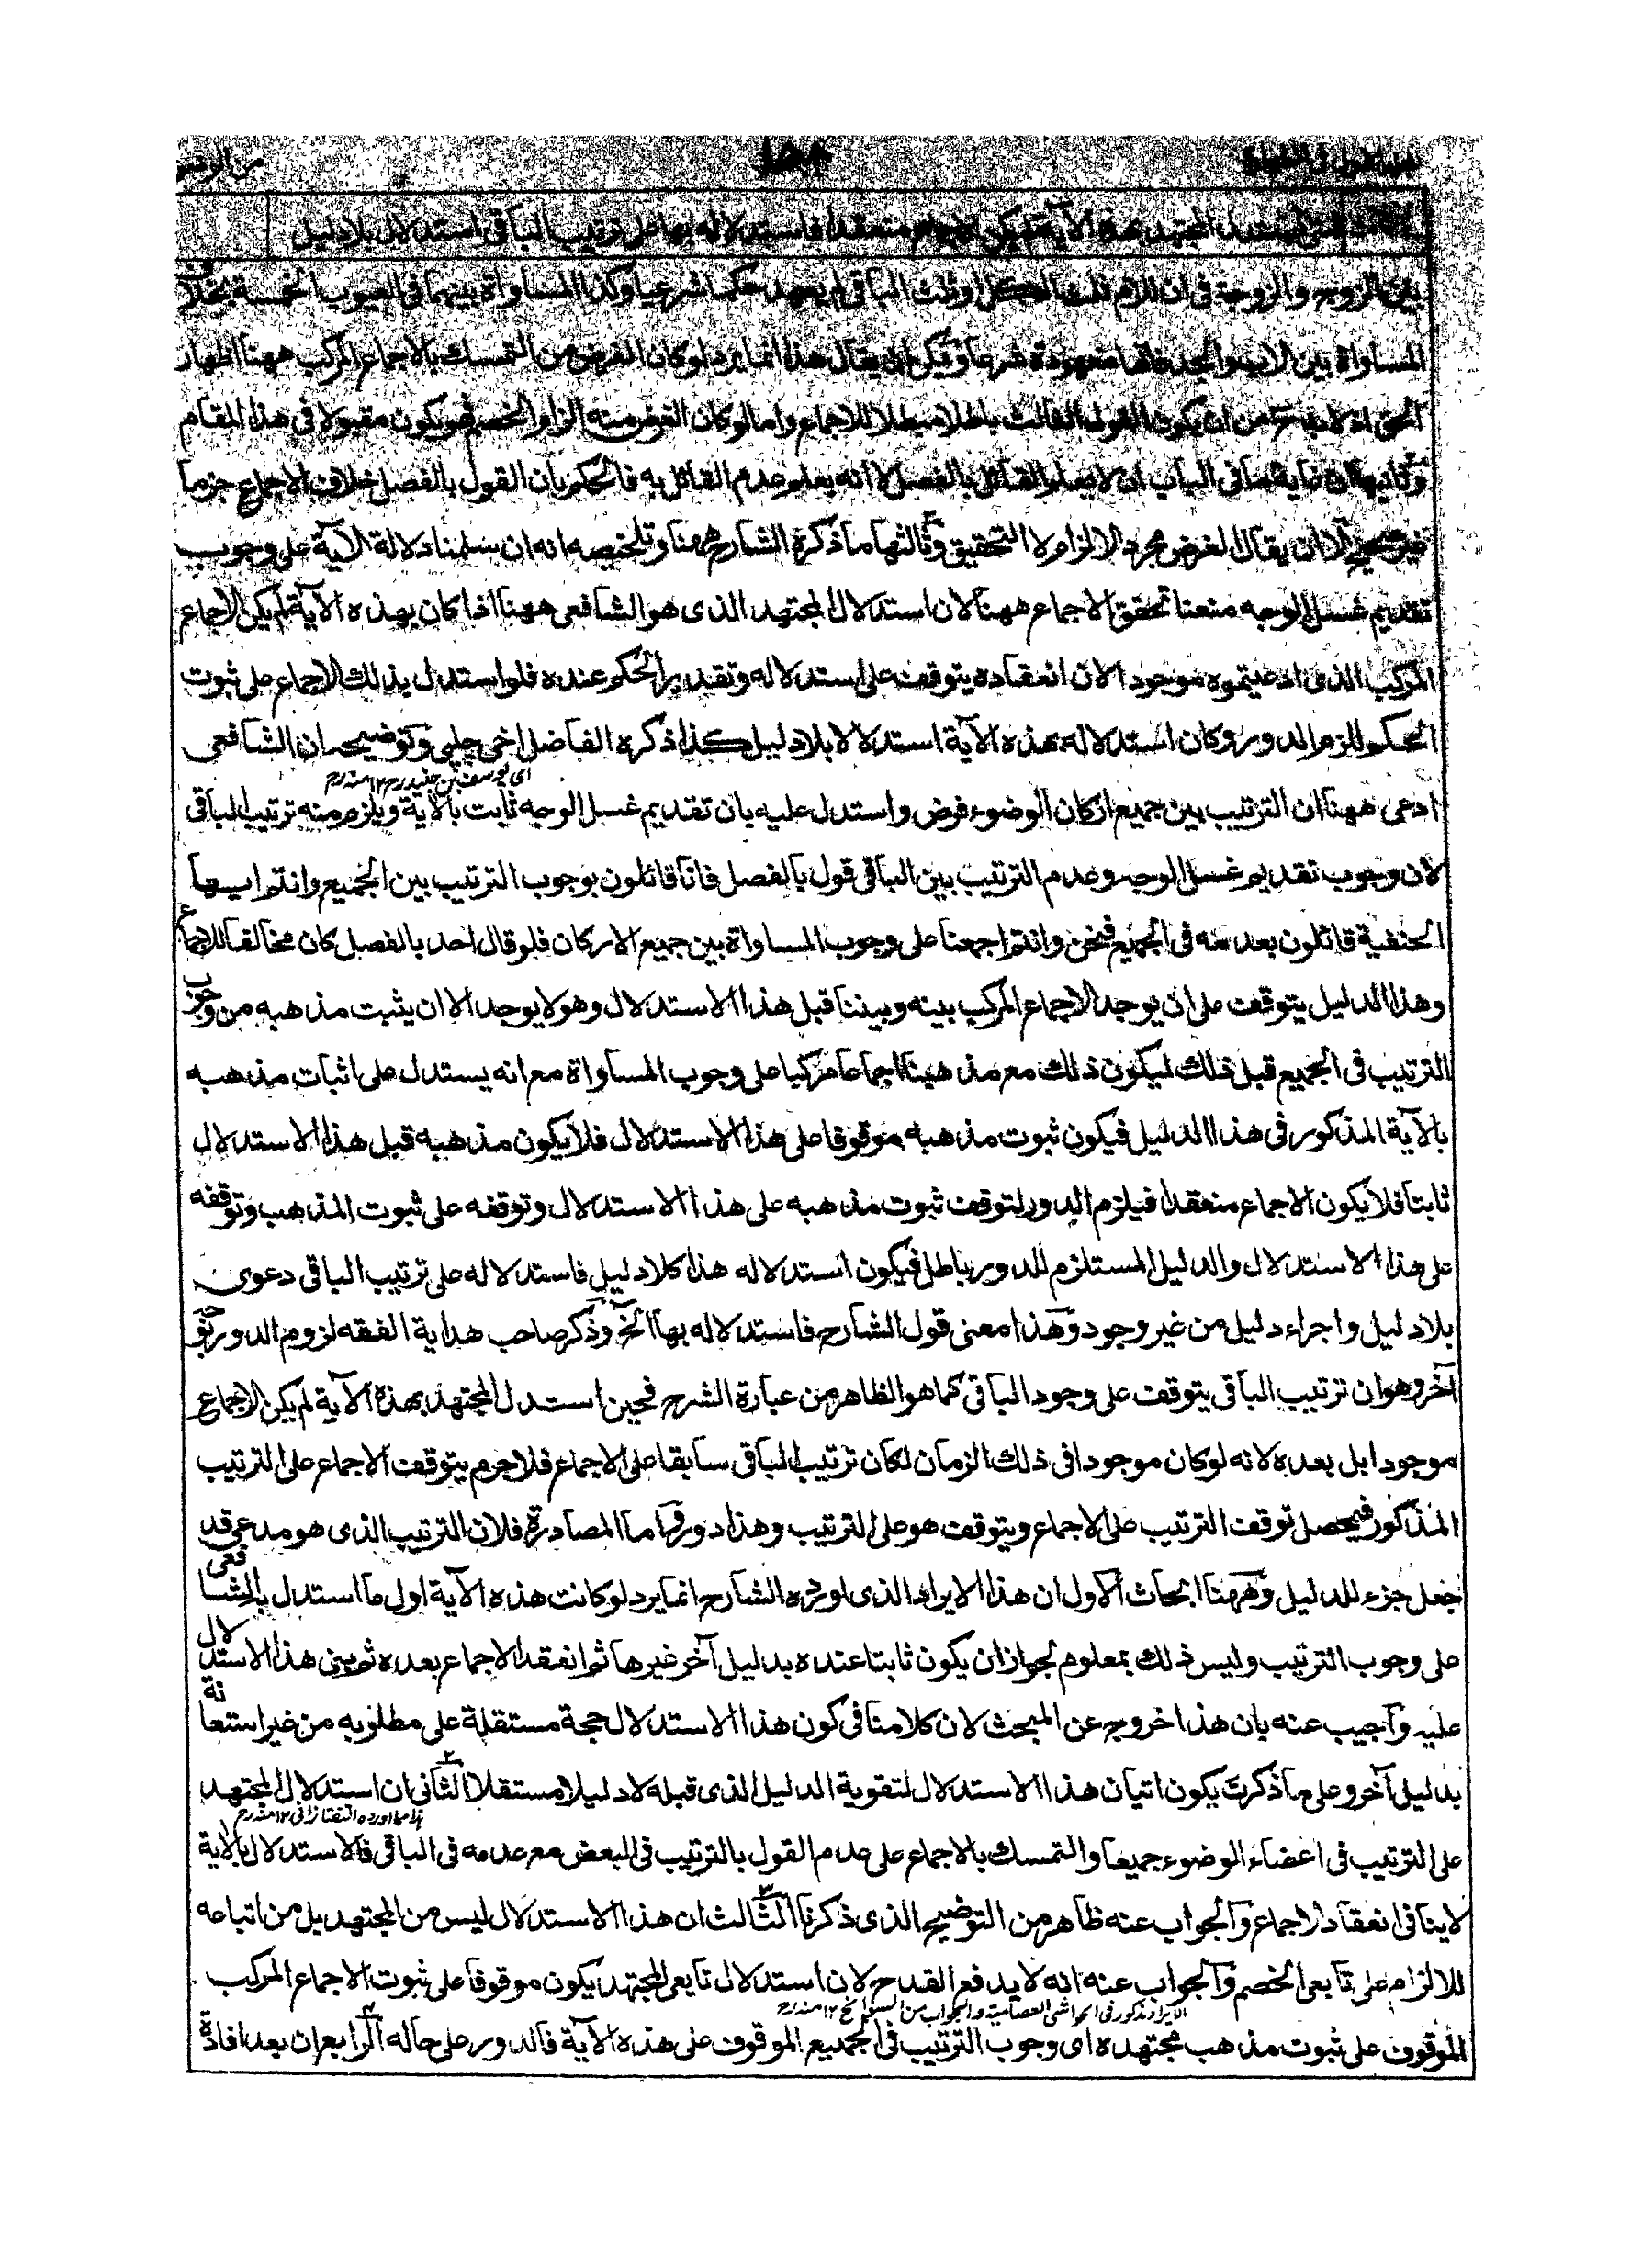 من الوضوء
فمتى استدل المجتهد بهذه الآية لم يكن الاجماع منعقدا فاستدلاله بها على ترتيب الباقي استدلال بلا دليل
بين الزوج والزوجة في ان للام ثلث الكل او ثلث الباقي لم يعهد حكما شرعيا وكذا المساواة بينهما في العيوب الخمسة بخلاف
المساواة بين الاب والجد فانها معهودة شرعا ويمكن ان يقال هذا انما يرد لو كان الغرض من التمسك بالاجماع المركب ههنا اظهار
الحق اذ لا بد من ان يكون القول الثالث باطلا مبطلا للاجماع واما لو كان الغرض منه الزام الخصم فهو يكون مقبولا في هذا المقام
وثانيها ان غاية ما في الباب ان لا يعلم القائل بالفصل لا انه يعلم عدم القائل به فالحكم بان القول بالفصل خلاف الاجماع جزما
غير صحيح الا ان يقال الغرض مجرد الالزام لا التحقيق وثالثها ما ذكره الشارح ههنا وتلخيصه انه ان سلمنا دلالة الآية على وجوب
تقديم غسل الوجه منعنا تحقق الاجماع ههنا لان استدلال المجتهد الذى هو الشافعى ههنا اذا كان بهذه الآية لم يكن الاجماع
المركب الذى ادعيتموه موجودا لان انعقاده يتوقف على استدلاله وتقدير الحكم عنده فلو استدل بذلك الاجماع على ثبوت
الحكم للزم الدور وكان استدلاله بهذه الآية استدلالا بلا دليل كذا ذكره الفاضل اخى چلپى وتوضيحه ان الشافعى
اى يوسف بن جنيد رح ١٢ منه رح
ادعى ههنا ان الترتيب بين جميع اركان الوضوء فرض واستدل عليه بان تقديم غسل الوجه ثابت بالآية ويلزم منه ترتيب الباقى
لان وجوب تقديم غسل الوجه وعدم الترتيب بين الباقى قول بالفصل فانا قائلون بوجوب الترتيب بين الجميع وانتم ايها
الحنفية قائلون بعدمه فى الجميع فنحن وانتم اجمعنا على وجوب المساواة بين جميع الاركان فلو قال احد بالفصل كان مخالفا للاجماع
وهذا الدليل يتوقف على ان يوجد الاجماع المركب بينه وبيننا قبل هذا الاستدلال وهو لا يوجد الا ان يثبت مذهبه من وجوب
الترتيب فى الجميع قبل ذلك ليكون ذلك مع مذهبنا اجماعا مركبا على وجوب المساواة مع انه يستدل على اثبات مذهبه
بالآية المذكور فى هذا الدليل فيكون ثبوت مذهبه موقوفا على هذا الاستدلال فلا يكون مذهبه قبل هذا الاستدلال
ثابتا فلا يكون الاجماع منعقدا فيلزم الدور لتوقف ثبوت مذهبه على هذا الاستدلال وتوقفه على ثبوت المذهب وتوقفه
على هذا الاستدلال والدليل المستلزم للدور باطل فيكون استدلاله هذا كلا دليل فاستدلاله على ترتيب الباقى دعوى
بلا دليل واجراء دليل من غير وجود وهذا معنى قول الشارح فاستدلاله بها الخ وذكر صاحب هداية الفقه لزوم الدور بوجه
آخر وهو ان ترتيب الباقى يتوقف على وجود الباقى كما هو الظاهر من عبارة الشرح فحين استدل المجتهد بهذه الآية لم يكن الاجماع
موجودا بل بعده لانه لو كان موجودا فى ذلك الزمان لكان ترتيب الباقى سابقا على الاجماع فلا جرم يتوقف الاجماع على الترتيب
المذكور فيحصل توقف الترتيب على الاجماع ويتوقف هو على الترتيب وهذا دور واما المصادرة فلان الترتيب الذى هو مدعى قد
جعل جزء للدليل وههنا ابحاث الاول ان هذا الايراد الذى اورده الشارح انما يرد لو كانت هذه الآية اول ما استدل به الشافعى
على وجوب الترتيب وليس ذلك بمعلوم لجواز ان يكون ثابتا عنده بدليل آخر غيرها ثم انعقد الاجماع بعده ثم بنى هذا الاستدلال
عليه وآجيب عنه بان هذا خروج عن المبحث لان كلامنا فى كون هذا الاستدلال حجة مستقلة على مطلوبه من غير استعانة
بدليل آخر وعلى ما ذكرت يكون اتيان هذا الاستدلال لتقوية الدليل الذى قبله لا دليلا مستقلا الثانى ان استدلال المجتهد
هذا مما اورده التفتازانى ١٢ منه رح
على الترتيب فى اعضاء الوضوء جميعا والتمسك بالاجماع على عدم القول بالترتيب فى البعض مع عدمه فى الباقى فالاستدلال بالآية
لا ينافى انعقاد الاجماع وآلجواب عنه ظاهر من التوضيح الذى ذكرنا الثالث ان هذا الاستدلال ليس من المجتهد بل من اتباعه
للالزام على تابعى الخصم وآلجواب عنه انه لا يدفع القدح لان استدلال تابعى المجتهد يكون موقوفا على ثبوت الاجماع المركب
الايراد مذكور فى الحواشى العصامية والجواب من السوانح ١٢ منه رح
الموقوف على ثبوت مذهب مجتهده اى وجوب الترتيب فى الجميع الموقوف على هذه الآية فالدور على حاله الرابع ان بعد افادة